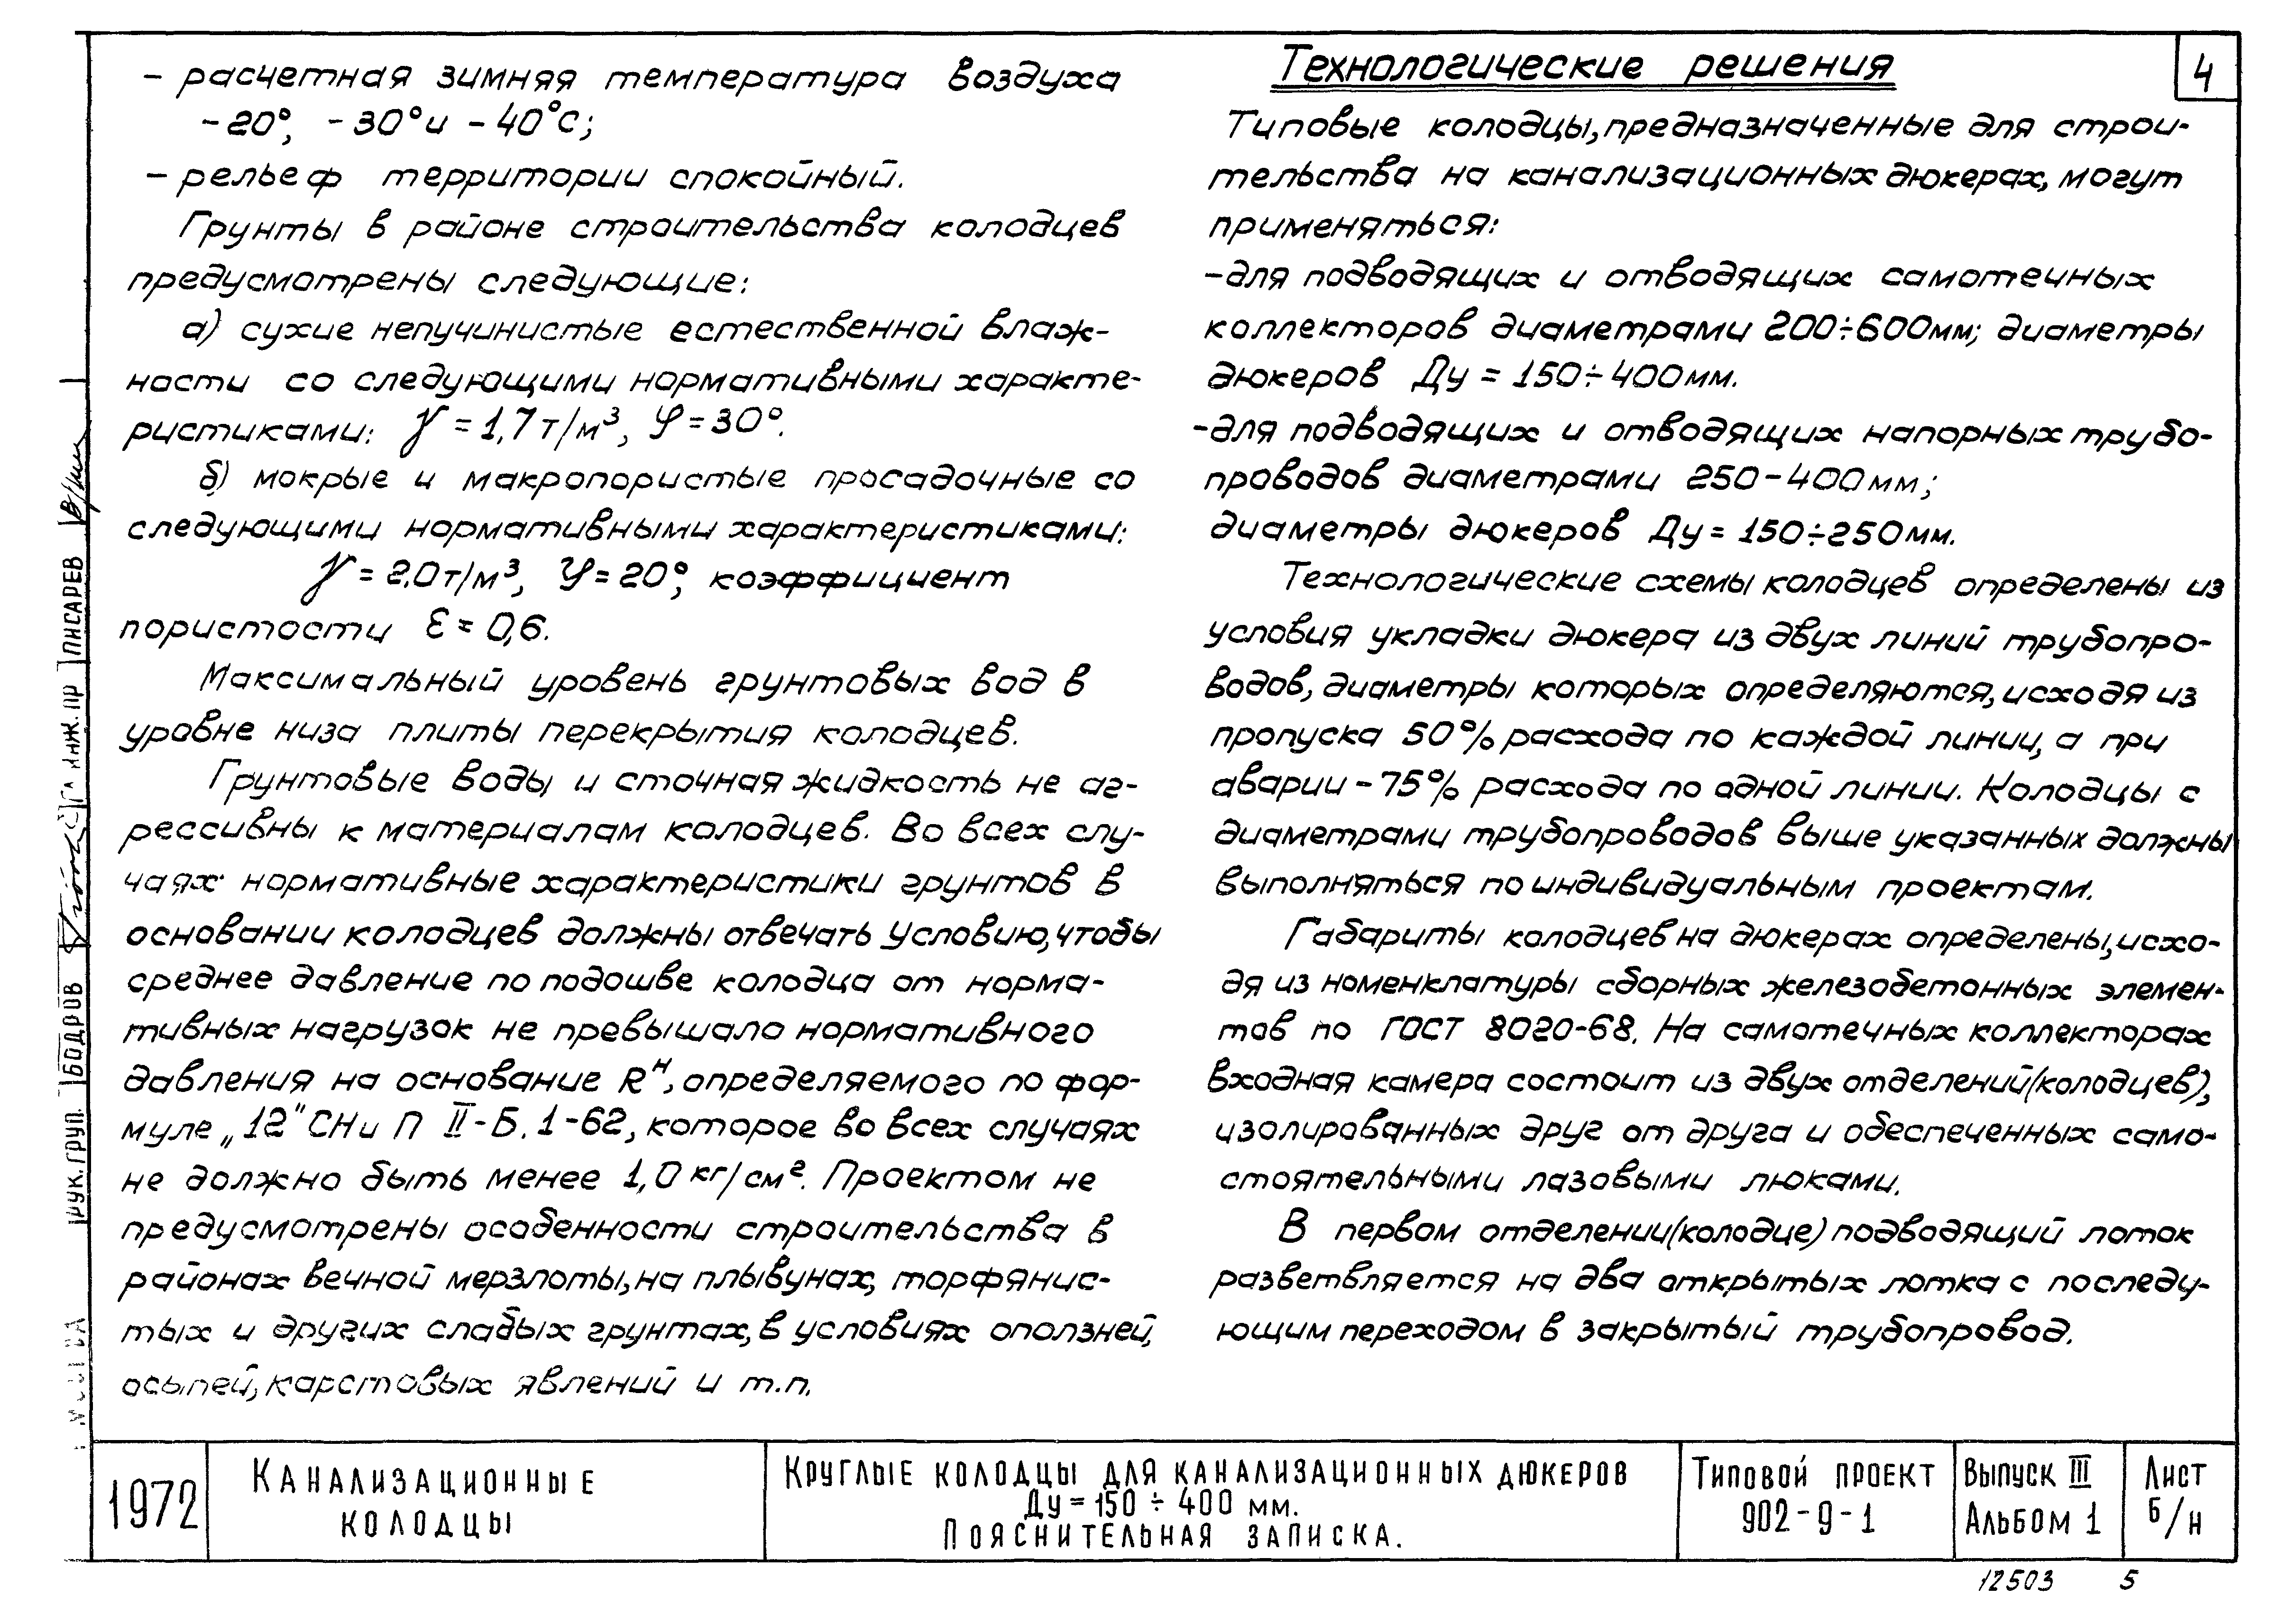 – расчетная зимняя температура воздуха
-20°, -30° и -40°С;
– рельеф территории спокойный.
Грунты в районе строительства колодцев
предусмотрены следующие:
а) сухие непучинистые естественной влаж-
ности со следующими нормативными характе-
ристиками: γ = 1,7 т/м³, φ = 30°.
б) мокрые и макропористые просадочные со
следующими нормативными характеристиками:
γ = 2.0т/м³, φ = 20°, коэффициент
пористости ε = 0,6.
Максимальный уровень грунтовых вод в
уровне низа плиты перекрытия колодцев.
Грунтовые воды и сточная жидкость не аг-
рессивны к материалам колодцев. Во всех слу-
чаях нормативные характеристики грунтов в
основании колодцев должны отвечать условию, чтобы
среднее давление по подошве колодца от норма-
тивных нагрузок не превышало нормативного
давления на основание Rᴴ, определяемого по фор-
муле „12" СНиП II-Б.1-62, которое во всех случаях
не должно быть менее 1,0 кг/см². Проектом не
предусмотрены особенности строительства в
районах вечной мерзлоты, на плывунах, торфянис-
тых и других слабых грунтах, в условиях оползней,
осыпей, карстовых явлений и т.п.
Технологические решения
4
Типовые колодцы, предназначенные для строи-
тельства на канализационных дюкерах, могут
применяться:
-для подводящих и отводящих самотечных
коллекторов диаметрами 200÷600мм; диаметры
дюкеров Ду = 150÷400мм.
-для подводящих и отводящих напорных трубо-
проводов диаметрами 250-400мм;
диаметры дюкеров Ду = 150÷250мм.
Технологические схемы колодцев определены из
условия укладки дюкера из двух линий трубопро-
водов, диаметры которых определяются, исходя из
пропуска 50% расхода по каждой линии, а при
аварии - 75% расхода по одной линии. Колодцы с
диаметрами трубопроводов выше указанных должны
выполняться по индивидуальным проектам.
Габариты колодцев на дюкерах определены, исхо-
дя из номенклатуры сборных железобетонных элемен-
тов по ГОСТ 8020-68. На самотечных коллекторах
входная камера состоит из двух отделений (колодцев),
изолированных друг от друга и обеспеченных само-
стоятельными лазовыми люками.
В первом отделении (колодце) подводящий лоток
разветвляется на два открытых лотка с последу-
ющим переходом в закрытый трубопровод.
Рук. груп. Бодров
Гл инж. пр Писарев
1972
Канализационные
колодцы
Круглые колодцы для канализационных дюкеров
Ду = 150 ÷ 400 мм.
Пояснительная записка.
Типовой проект
902-9-1
Выпуск III
Альбом 1
Лист
Б/н
12503 5